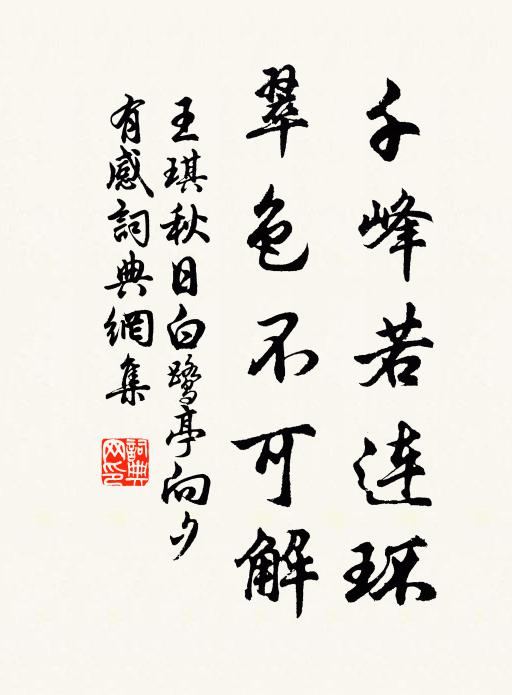 千峰若連环
翠色不可解
王琪秋日白鹭亭向夕
有感詞典網集
詞典
网印